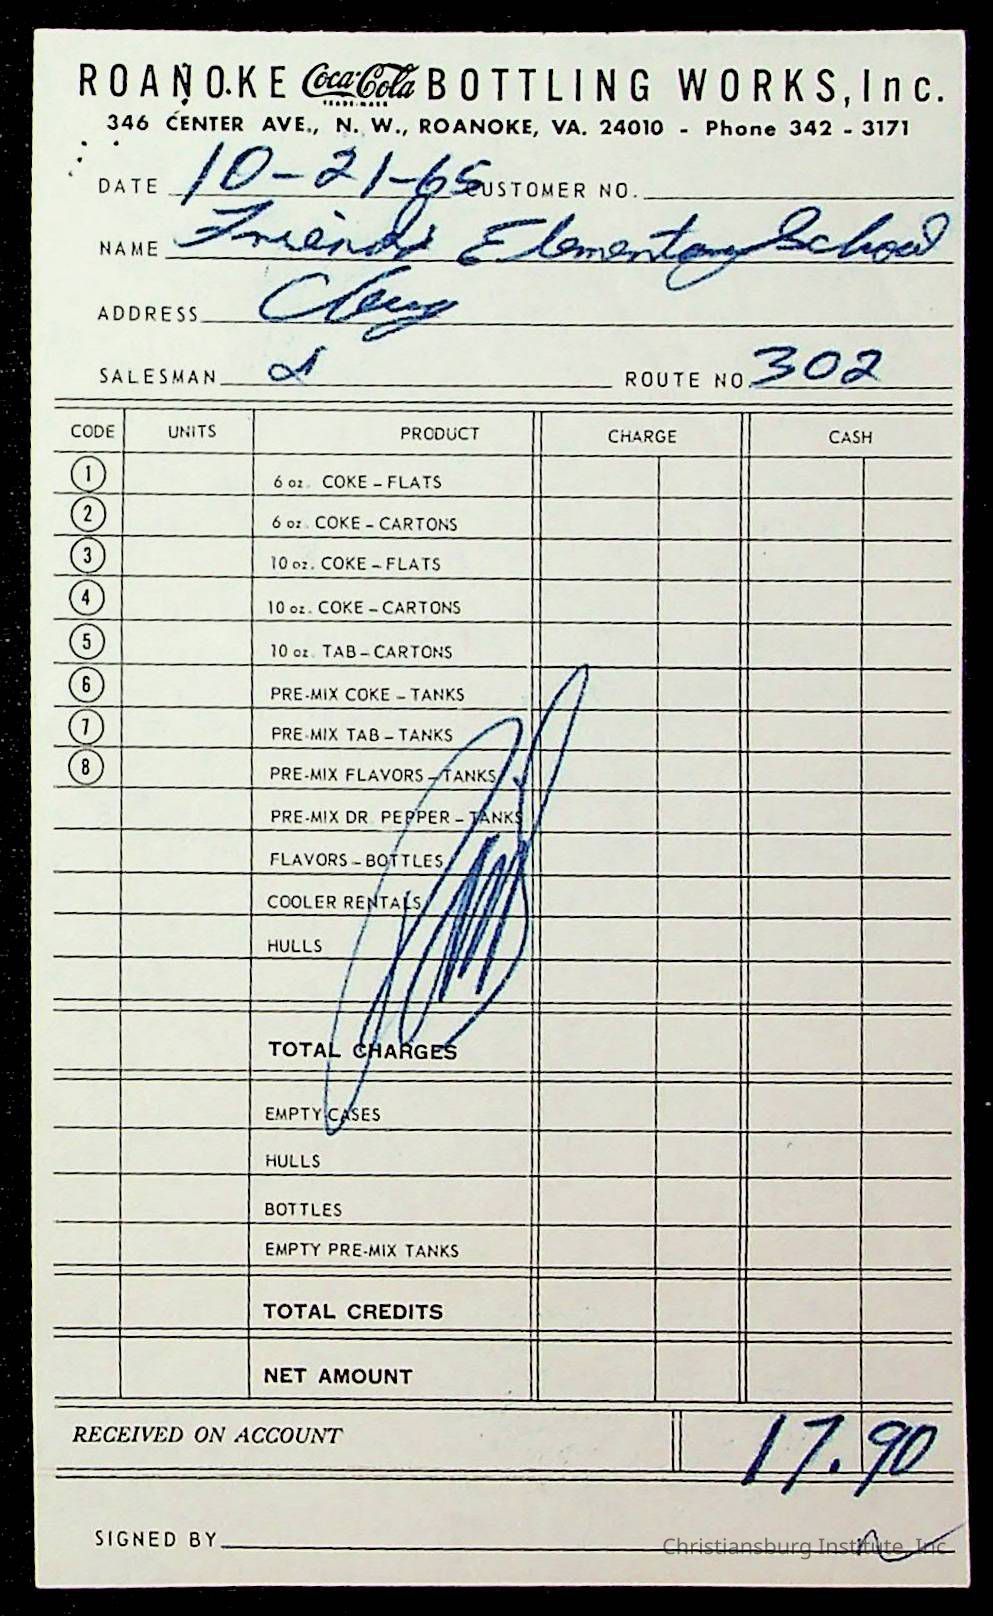 ROANOKE Coca-Cola BOTTLING WORKS, Inc.
TRADE-MARK
346 CENTER AVE., N. W., ROANOKE, VA. 24010 - Phone 342 - 3171
DATE 10-21-65 CUSTOMER NO.
NAME Friends Elementary School
ADDRESS
SALESMAN ROUTE NO. 302
CODE UNITS PRODUCT CHARGE CASH
1 6 oz. COKE - FLATS
2 6 oz. COKE - CARTONS
3 10 oz. COKE - FLATS
4 10 oz. COKE - CARTONS
5 10 oz. TAB - CARTONS
6 PRE-MIX COKE - TANKS
7 PRE-MIX TAB - TANKS
8 PRE-MIX FLAVORS - TANKS
PRE-MIX DR. PEPPER - TANKS
FLAVORS - BOTTLES
COOLER RENTALS
HULLS
TOTAL CHARGES
EMPTY CASES
HULLS
BOTTLES
EMPTY PRE-MIX TANKS
TOTAL CREDITS
NET AMOUNT
RECEIVED ON ACCOUNT 17.90
SIGNED BY
Christiansburg Institute, Inc